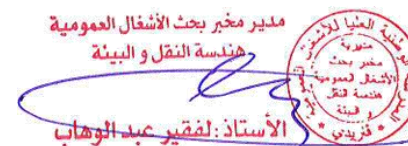 مدير مخبر بحث الأشغال العمومية
هندسة النقل و البيئة
الأستاذ: لفقير عبد الوهاب
مديرية
مخبر بحث
الأشغال العمومية
هندسة النقل
و البيئة